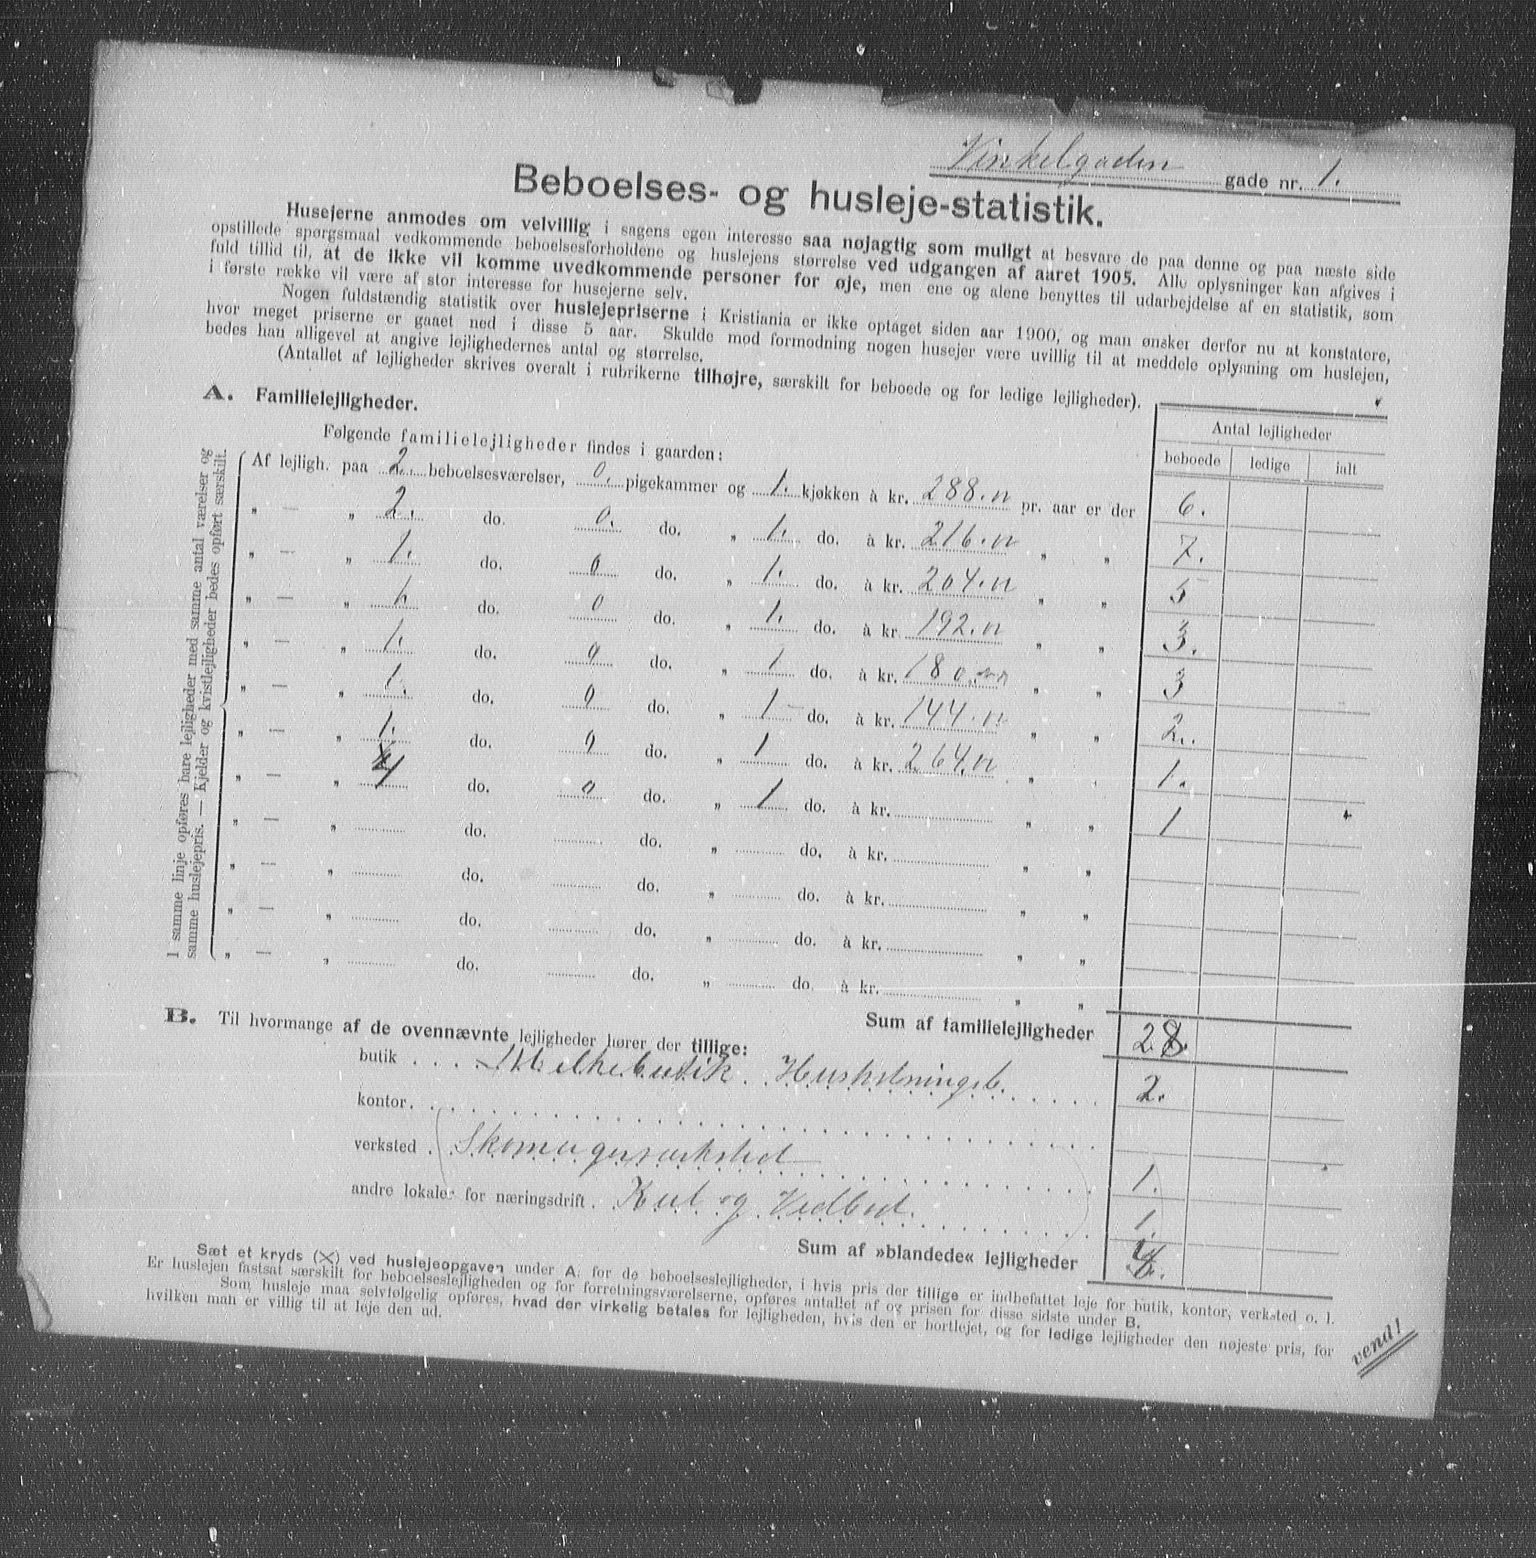 Vinkelgaden gade nr. 1.
Beboelses- og husleje-statistik.
Husejerne anmodes om velvillig i sagens egen interesse saa nøjagtig som muligt at besvare de paa denne og paa næste side
opstillede spørgsmaal vedkommende beboelsesforholdene og huslejens størrelse ved udgangen af aaret 1905. Alle oplysninger kan afgives i
fuld tillid til, at de ikke vil komme uvedkommende personer for øje, men ene og alene benyttes til udarbejdelse af en statistik, som
i første række vil være af stor interesse for husejerne selv.
Nogen fuldstændig statistik over huslejepriserne i Kristiania er ikke optaget siden aar 1900, og man ønsker derfor nu at konstatere,
hvor meget priserne er gaaet ned i disse 5 aar. Skulde mod formodning nogen husejer være uvillig til at meddele oplysning om huslejen,
bedes han alligevel at angive lejlighedernes antal og størrelse.
(Antallet af lejligheder skrives overalt i rubrikerne tilhøjre, særskilt for beboede og for ledige lejligheder).
A. Familielejligheder.
Antal lejligheder
Følgende familielejligheder findes i gaarden:
beboede ledige ialt
I samme linje opføres bare lejligheder med samme antal værelser og
samme huslejepris. — Kjelder og kvistlejligheder bedes opført særskilt.
Af lejligh. paa 2. beboelsesværelser, 0. pigekammer og 1. kjøkken à kr. 288.n pr. aar er der 6.
„ — „ 2. do. 0. do. „ 1. do. à kr. 216.n „ „ 7.
„ — „ 1. do. 0 do. „ 1. do. à kr. 204.n „ „ 5
„ — „ 1. do. 0 do. „ 1. do. à kr. 192.n „ „ 3.
„ — „ 1. do. 0 do. „ 1 do. à kr. 180. „ „ 3
„ — „ 1. do. 0 do. „ 1 - do. à kr. 144.n „ „ 2.
„ — „ 1. do. 0 do. „ 1 do. à kr. 264.n „ „ 1.
„ — „ 4 do. 0 do. „ 1 do. à kr. „ „ 1
„ — „ do. do. „ do. à kr. „ „
„ — „ do. do. „ do. à kr. „ „
„ — „ do. do. „ do. à kr. „ „
„ — „ do. do. „ do. à kr. „ „
Sum af familielejligheder 28.
B. Til hvormange af de ovennævnte lejligheder hører der tillige:
butik . . . . Melkebutik. Husholningsb. 2.
kontor. .
verksted . Skomagerværksted 1.
andre lokaler for næringsdrift . Kul og Vedbod. 1.
Sum af »blandede« lejligheder
Sæt et kryds (X) ved huslejeopgaven under A. for de beboelseslejligheder, i hvis pris der tillige er indbefattet leje for butik, kontor, verksted o. l.
Er huslejen fastsat særskilt for beboelseslejligheden og for forretningsværelserne, opføres antallet af og prisen for disse sidste under B.
Som husleje maa selvfølgelig opføres, hvad der virkelig betales for lejligheden, hvis den er bortlejet, og for ledige lejligheder den nøjeste pris, for
hvilken man er villig til at leje den ud.
vend!